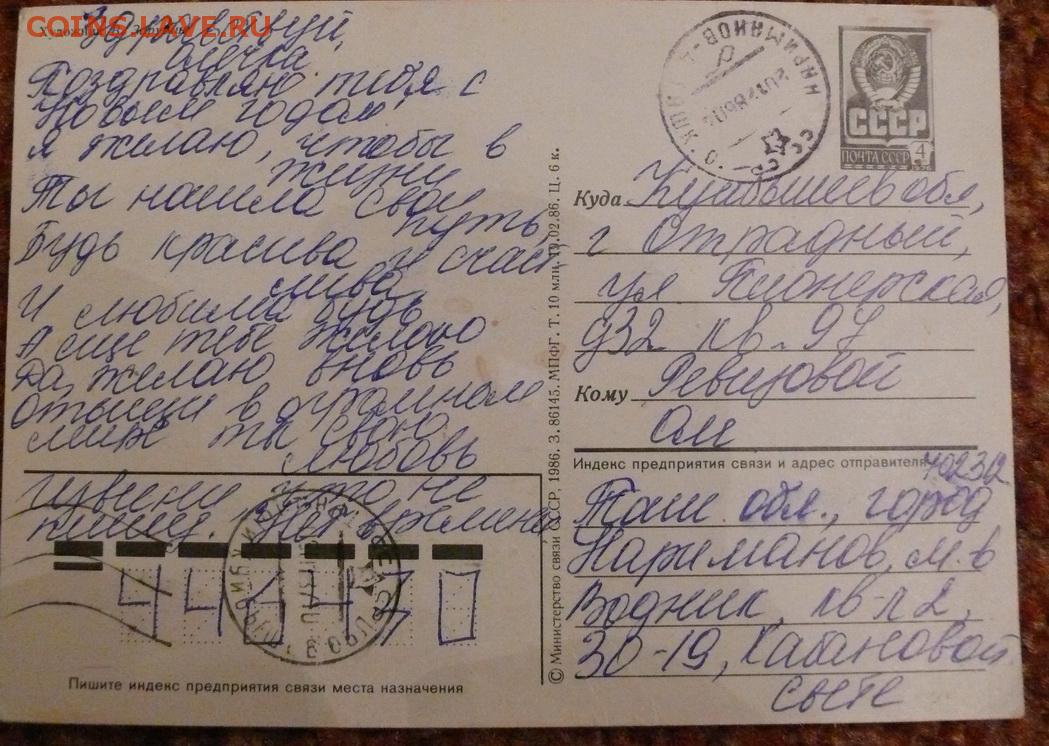 COINS.LAVE.RU
Здравствуй,
Олечка
Поздравляю тебя с
Новым годом
Я желаю, чтобы в
жизни
Ты нашла свой
путь,
Будь красива и счаст
лива
И любимой будь
А еще тебе желаю
Да, желаю вновь
Отыщи в огромном
мире ты свою
любовь
Извени что не
пишу. Нет времени
446430
Пишите индекс предприятия связи места назначения
© Министерство связи СССР, 1986. З. 86145. МПФГ. Т. 10 млн. 19.02.86. Ц. 6 к.
СССР
ПОЧТА СССР 4
Куда Куйбышев обл,
г Отрадный,
ул Пионерская,
д32 кв. 97
Кому Ревизовой
Оли
Индекс предприятия связи и адрес отправителя 702312
Таш. обл., город
Нариманов, м-в
Водник, кв-л 2,
30-19, Кабановой
свете